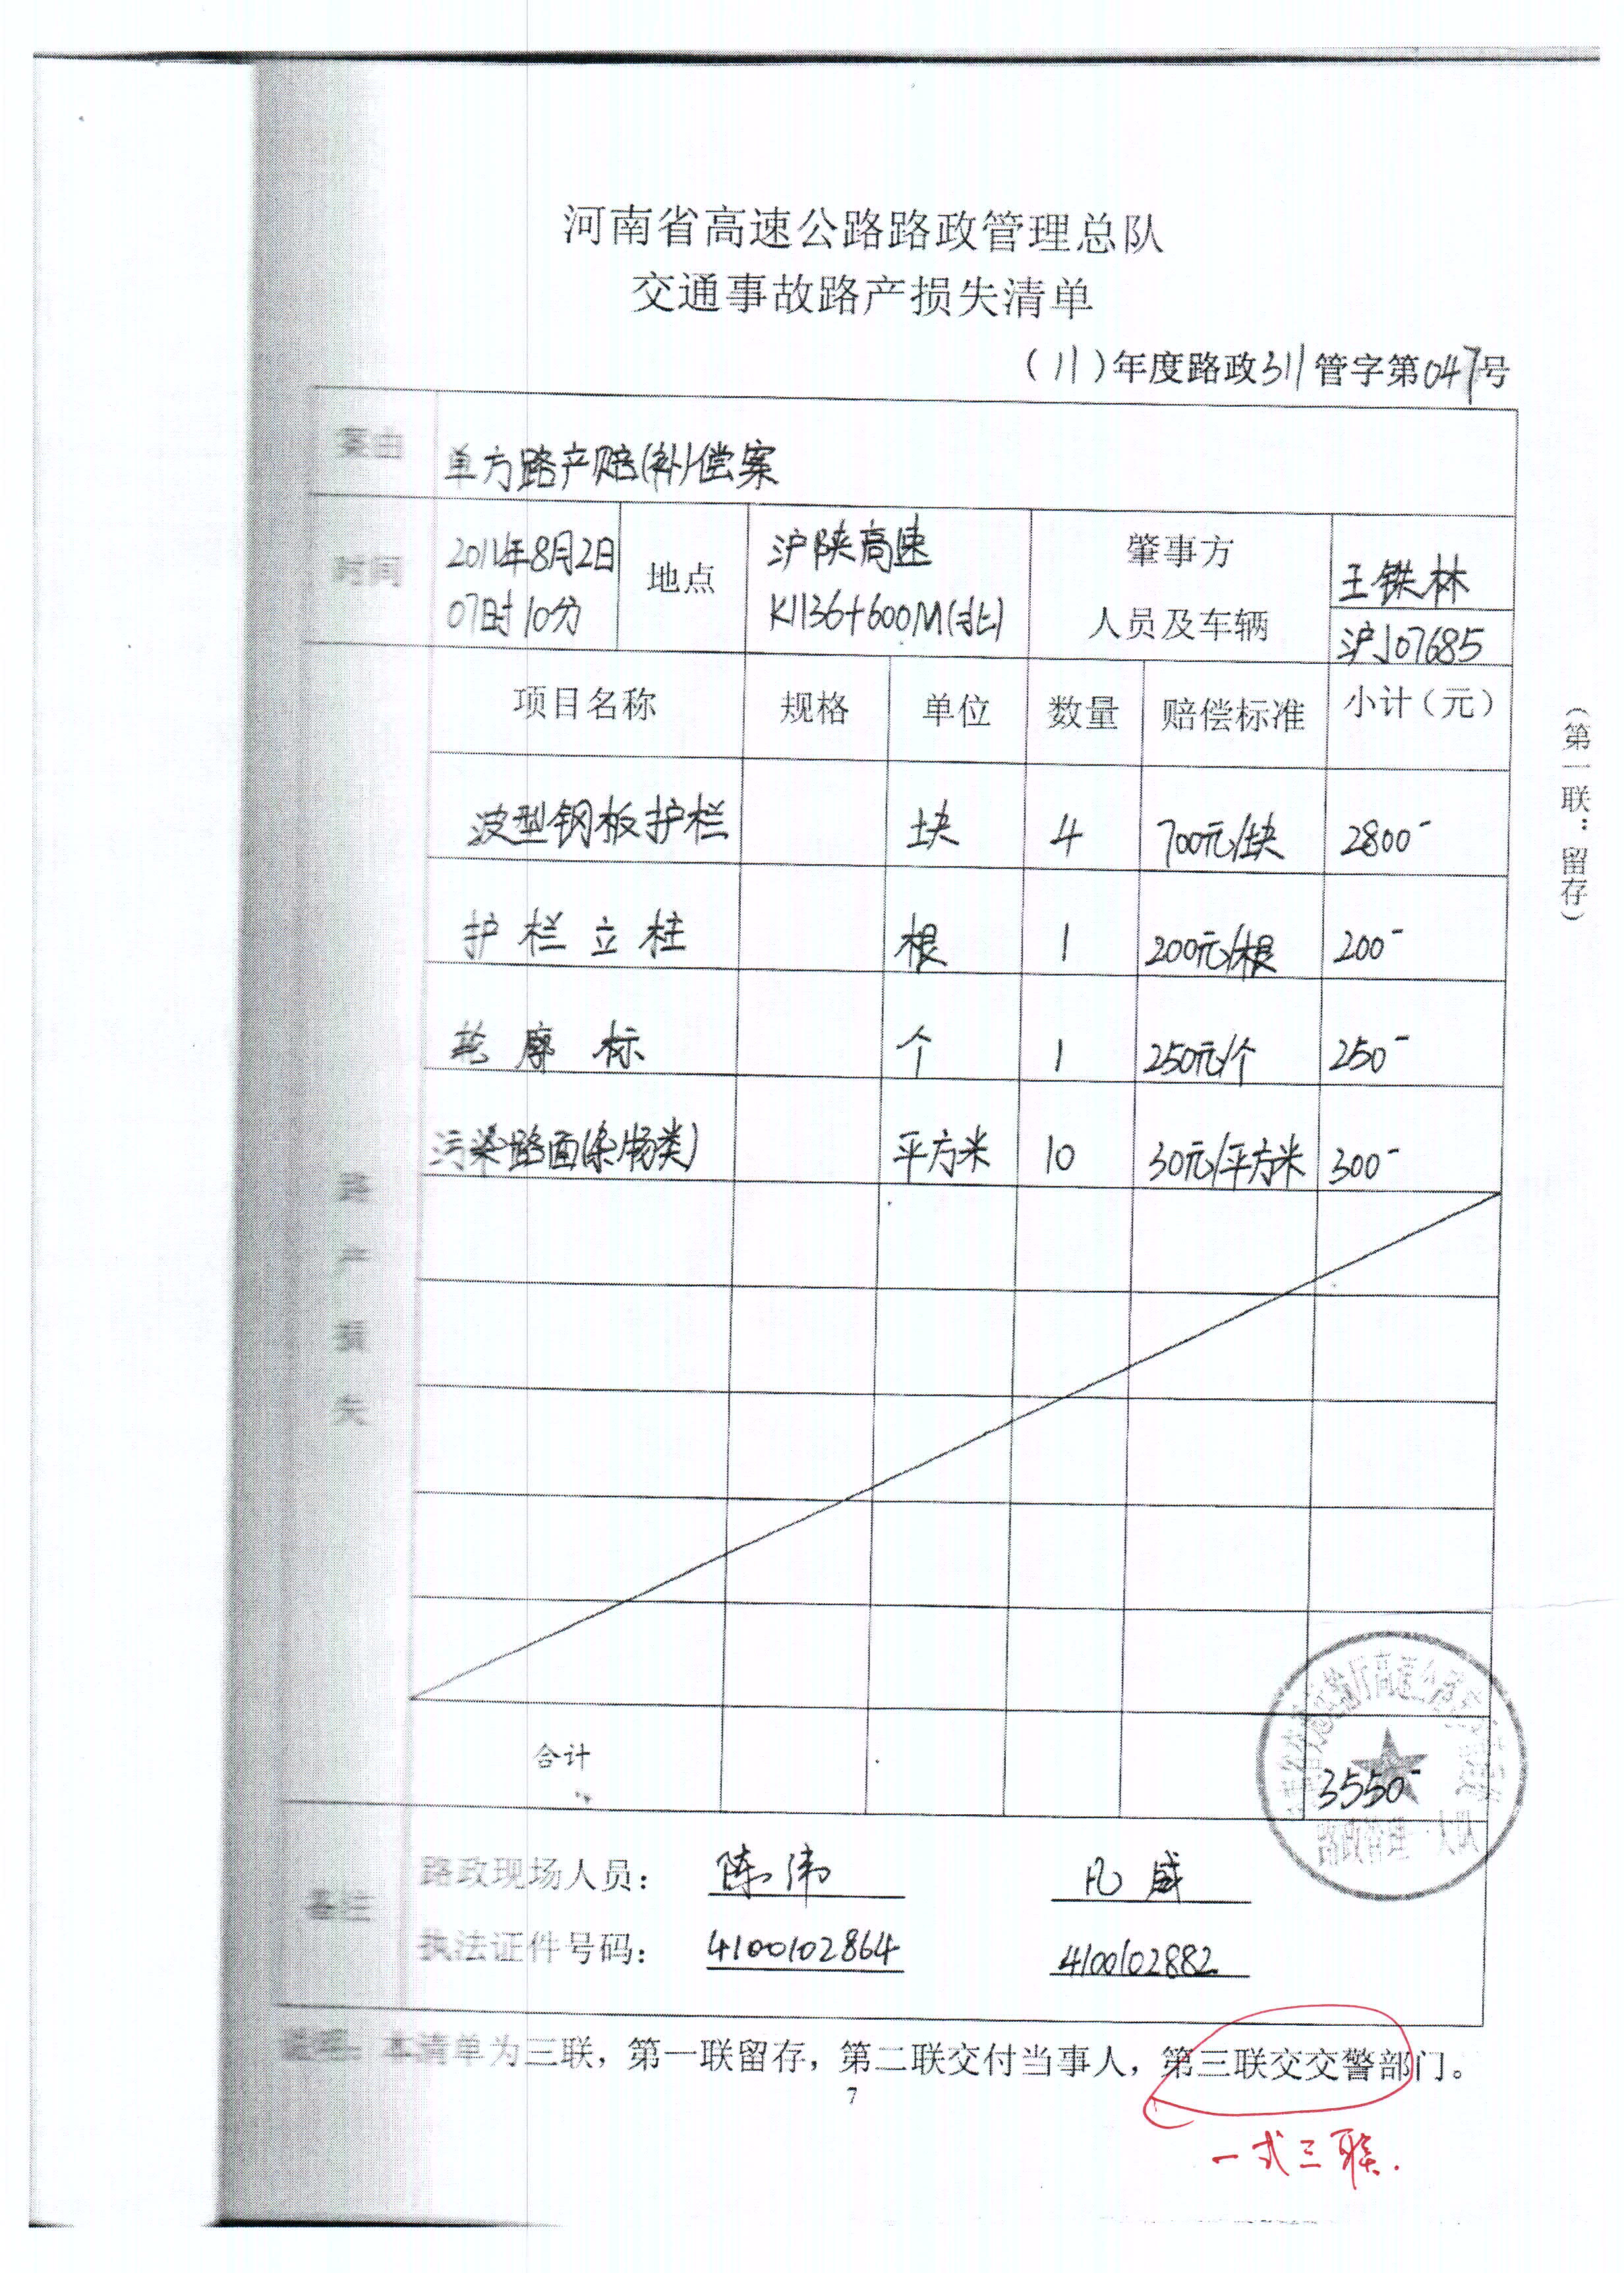 河南省高速公路路政管理总队
交通事故路产损失清单
(11)年度路政311管字第047号
案由 单方路产赔(补)偿案
时间 2011年8月2日 07时10分 地点 沪陕高速 K1136+600M(北) 肇事方 人员及车辆 王铁林 沪J07685
路产损失
项目名称 规格 单位 数量 赔偿标准 小计(元)
波型钢板护栏 块 4 700元/块 2800-
护栏立柱 根 1 200元/根 200-
轮廓标 个 1 250元/个 250-
污染路面(杂物类) 平方米 10 30元/平方米 300-
合计 3550-
备注
路政现场人员: 陈伟 凡威
执法证件号码: 4100102864 4100102882
说明:本清单为三联,第一联留存,第二联交付当事人,第三联交交警部门。
7
一式三联.
(第一联:留存)